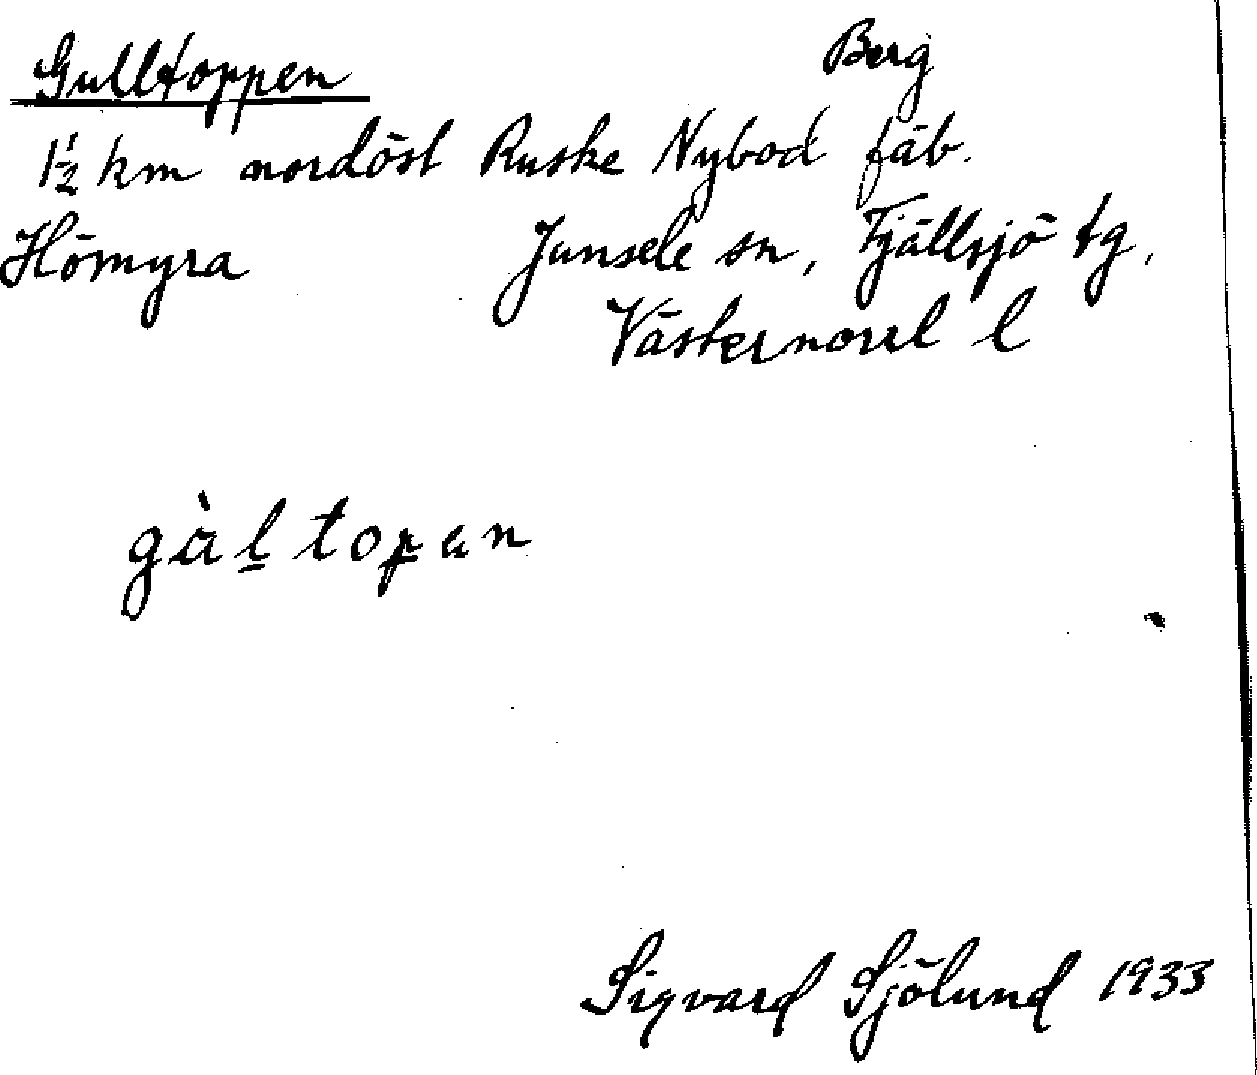 Gulltoppen Berg
1½ km nordöst Ruske Nybod fäb.
Hömyra Junsele sn, Fjällsjö tg,
Västernorrl l
gàl̲topan
Sigvard Sjölund 1933